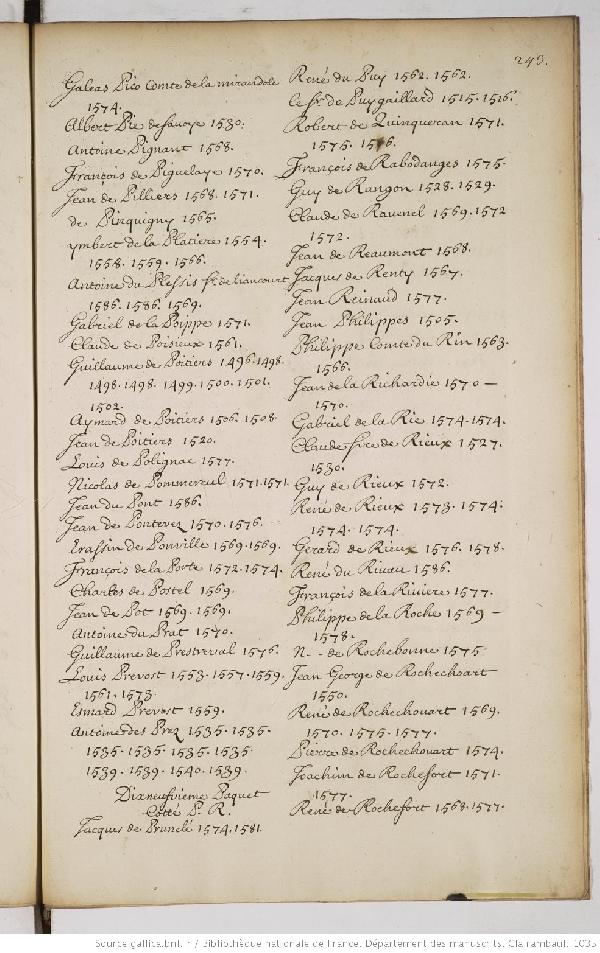 243.
Galeas Pico Comte de la mirandole
1574.
Albert Pie de sauoye 1530.
Antoine Pignant 1568.
François de Piguelaye 1570.
Jean de Pilliers 1568. 1571.
de Pinquigny 1565.
ymbert de la Platiere 1554.
1558. 1559. 1566.
Antoine du Plessis sr. de liancourt
1586. 1586. 1569.
Gabriel de la Poippe 1571.
Claude de Poisieux 1561.
Guillaume de Poitiers 1496. 1498.
1498. 1498. 1499. 1500. 1501.
1502.
Aymard de Poitiers 1506. 1508.
Jean de Poitiers 1520.
Louis de Polignac 1577.
Nicolas de Pommereul 1571. 1571.
Jean du Pont 1586.
Jean de Pontevez 1570. 1576.
Erassin de Ponville 1569. 1569.
François de la Porte 1572. 1574.
Charles de Postel 1569.
Jean de Pot 1569. 1569.
Antoine du Prat 1570.
Guillaume de Prestreval 1576.
Louis Prevost 1553. 1557. 1559.
1561. 1573.
Esmard Prevost 1559.
Antoine des Prez 1535. 1535.
1535. 1535. 1535. 1535.
1539. 1539. 1540. 1539.
Dixneufvieme Paquet
Cotté P. R.
Jacques de Prunelé 1574. 1581.
René du Puy 1562. 1562.
le sr. de Puygaillard 1515. 1516.
Robert de Quinqueran 1571.
1575. 1576.
François de Rabodanges 1575.
Guy de Rangon 1528. 1529.
Claude de Ravenel 1569. 1572
1572.
Jean de Reaumont 1568.
Jacques de Renty 1567.
Jean Reinaud 1577.
Jean Philippes 1505.
Philippe Comte du Rin 1563.
1566.
Jean de la Richardie 1570 —
1570.
Gabriel de la Rie 1574. 1574.
Claude sire de Rieux 1527.
1530.
Guy de Rieux 1572.
René de Rieux 1573. 1574.
1574. 1574.
Gerard de Rieux 1576. 1578.
René du Rivau 1586.
François de la Riviere 1577.
Philippe de la Roche 1569 —
1578.
N - - de Rochebonne 1575
Jean George de Rochechoart
1550.
René de Rochechouart 1569.
1570. 1575. 1577.
Pierre de Rochechouart 1574.
Joachim de Rochefort 1571.
1577.
René de Rochefort 1568. 1577.
Source gallica.bnf.fr / Bibliothèque nationale de France. Département des manuscrits. Clairambault 1035